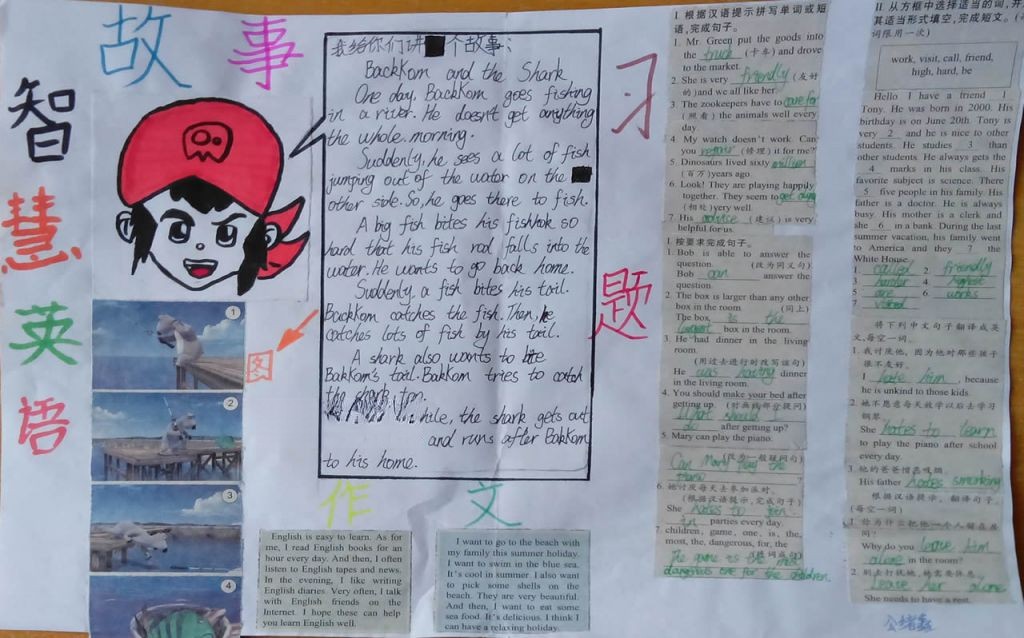 智慧英语
故事
我给你们讲个故事:
BackKom and the Shark
One day, BackKom goes fishing
in a river. He doesn't get anything
the whole morning.
Suddenly, he sees a lot of fish
jumping out of the water on the
other side. So, he goes there to fish.
A big fish bites his fishhok so
hard that his fish rod falls into the
water. He wants to go back home.
Suddenly, a fish bites his tail.
BackKom catches the fish. Then, he
catches lots of fish by his tail.
A shark also wants to bite
BakKom's tail. BakKom tries to catch
the shark, too.
hile, the shark gets out
and runs after BakKom
to his home.
图
1
2
3
4
作文
English is easy to learn. As for
me, I read English books for an
hour every day. And then, I often
listen to English tapes and news.
In the evening, I like writing
English diaries. Very often, I talk
with English friends on the
Internet. I hope these can help
you learn English well.
I want to go to the beach with
my family this summer holiday.
I want to swim in the blue sea.
It's cool in summer. I also want
to pick some shells on the
beach. They are very beautiful.
And then, I want to eat some
sea food. It's delicious. I think I
can have a relaxing holiday.
习题
I. 根据汉语提示拼写单词或短
语,完成句子。
1. Mr. Green put the goods into
the truck (卡车) and drove
to the market.
2. She is very friendly (友好
的)and we all like her.
3. The zookeepers have to care for
(照看) the animals well every
day.
4. My watch doesn't work. Can
you repair (修理) it for me?
5. Dinosaurs lived sixty million
(百万)years ago.
6. Look! They are playing happily
together. They seem to get along
(相处)very well.
7. His advice (建议) is very
helpful for us.
I. 按要求完成句子。
1. Bob is able to answer the
question. (改为同义句)
Bob can answer the
question.
2. The box is larger than any other
box in the room. (同上)
The box is the
largest box in the room.
3. He had dinner in the living
room.
(用过去进行时改写该句)
He was having dinner
in the living room.
4. You should make your bed after
getting up. (对画线部分提问)
What should
do after getting up?
5. Mary can play the piano.
(改为一般疑问句)
Can Mary play the
?
6. 她讨厌每天去参加派对。
(根据汉语提示,完成句子)
She hates to join
in parties every day.
7. children, game, one, is, the,
most, the, dangerous, for, the
(连词成句)
The game is the most
dangerous one for the children.
II. 从方框中选择适当的词,并
其适当形式填空,完成短文。(
词限用一次)
work, visit, call, friend,
high, hard, be
Hello I have a friend 1
Tony. He was born in 2000. His
birthday is on June 20th. Tony is
very 2 and he is nice to other
students. He studies 3 than
other students. He always gets the
4 marks in his class. His
favorite subject is science. There
5 five people in his family. His
father is a doctor. He is always
busy. His mother is a clerk and
she 6 in a bank. During the last
summer vacation, his family went
to America and they 7 the
White House.
1. called 2. friendly
3. harder 4. highest
5. are 6. works
7. visited
将下列中文句子翻译成英
文,每空一词。
1. 我讨厌他,因为他对那些孩子
很不友好。
I hate him, because
he is unkind to those kids.
2. 她不愿意每天放学以后去学习
钢琴。
She hates to learn
to play the piano after school
every day.
3. 他的爸爸憎恶吸烟。
His father hates smoking
根据汉语提示, 翻译句子。
(每空一词)
1. 你为什么把他一个人留在房
间?
Why do you leave him
alone in the room?
2. 别去打扰她,她需要休息。
Leave her alone
She needs to have a rest.